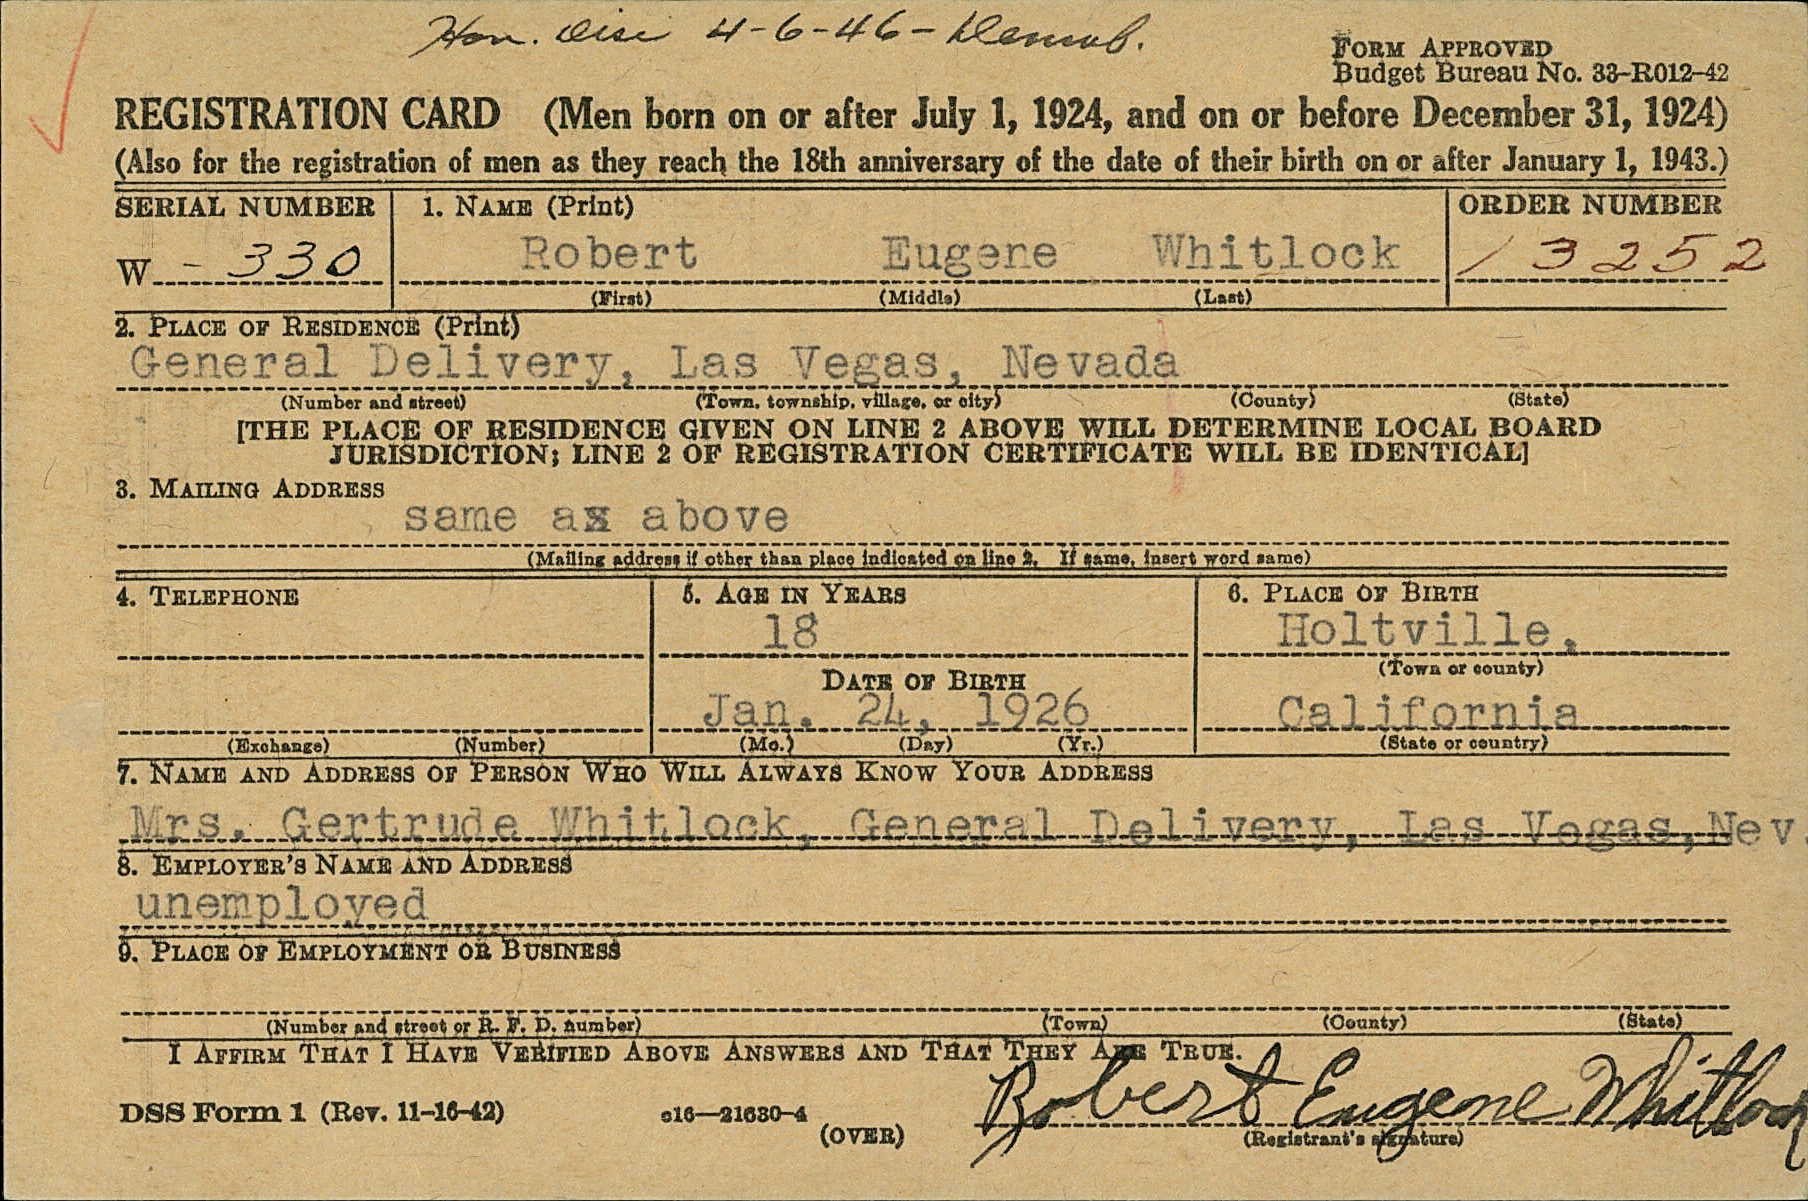 Hon. Disc 4-6-46 - Demob.
FORM APPROVED
Budget Bureau No. 33-R012-42
REGISTRATION CARD (Men born on or after July 1, 1924, and on or before December 31, 1924)
(Also for the registration of men as they reach the 18th anniversary of the date of their birth on or after January 1, 1943.)
SERIAL NUMBER 1. NAME (Print) ORDER NUMBER
W - 330 Robert Eugene Whitlock 13252
(First) (Middle) (Last)
2. PLACE OF RESIDENCE (Print)
General Delivery, Las Vegas, Nevada
(Number and street) (Town, township, village, or city) (County) (State)
[THE PLACE OF RESIDENCE GIVEN ON LINE 2 ABOVE WILL DETERMINE LOCAL BOARD
JURISDICTION; LINE 2 OF REGISTRATION CERTIFICATE WILL BE IDENTICAL]
3. MAILING ADDRESS
same as above
(Mailing address if other than place indicated on line 2. If same, insert word same)
4. TELEPHONE 5. AGE IN YEARS 6. PLACE OF BIRTH
18 Holtville,
(Town or county)
DATE OF BIRTH
Jan. 24, 1926 California
(Exchange) (Number) (Mo.) (Day) (Yr.) (State or country)
7. NAME AND ADDRESS OF PERSON WHO WILL ALWAYS KNOW YOUR ADDRESS
Mrs. Gertrude Whitlock, General Delivery, Las Vegas, Nev.
8. EMPLOYER'S NAME AND ADDRESS
unemployed
9. PLACE OF EMPLOYMENT OR BUSINESS
(Number and street or R. F. D. number) (Town) (County) (State)
I AFFIRM THAT I HAVE VERIFIED ABOVE ANSWERS AND THAT THEY ARE TRUE.
Robert Eugene Whitlock
DSS Form 1 (Rev. 11-16-42) c16—21630-4
(OVER) (Registrant's signature)